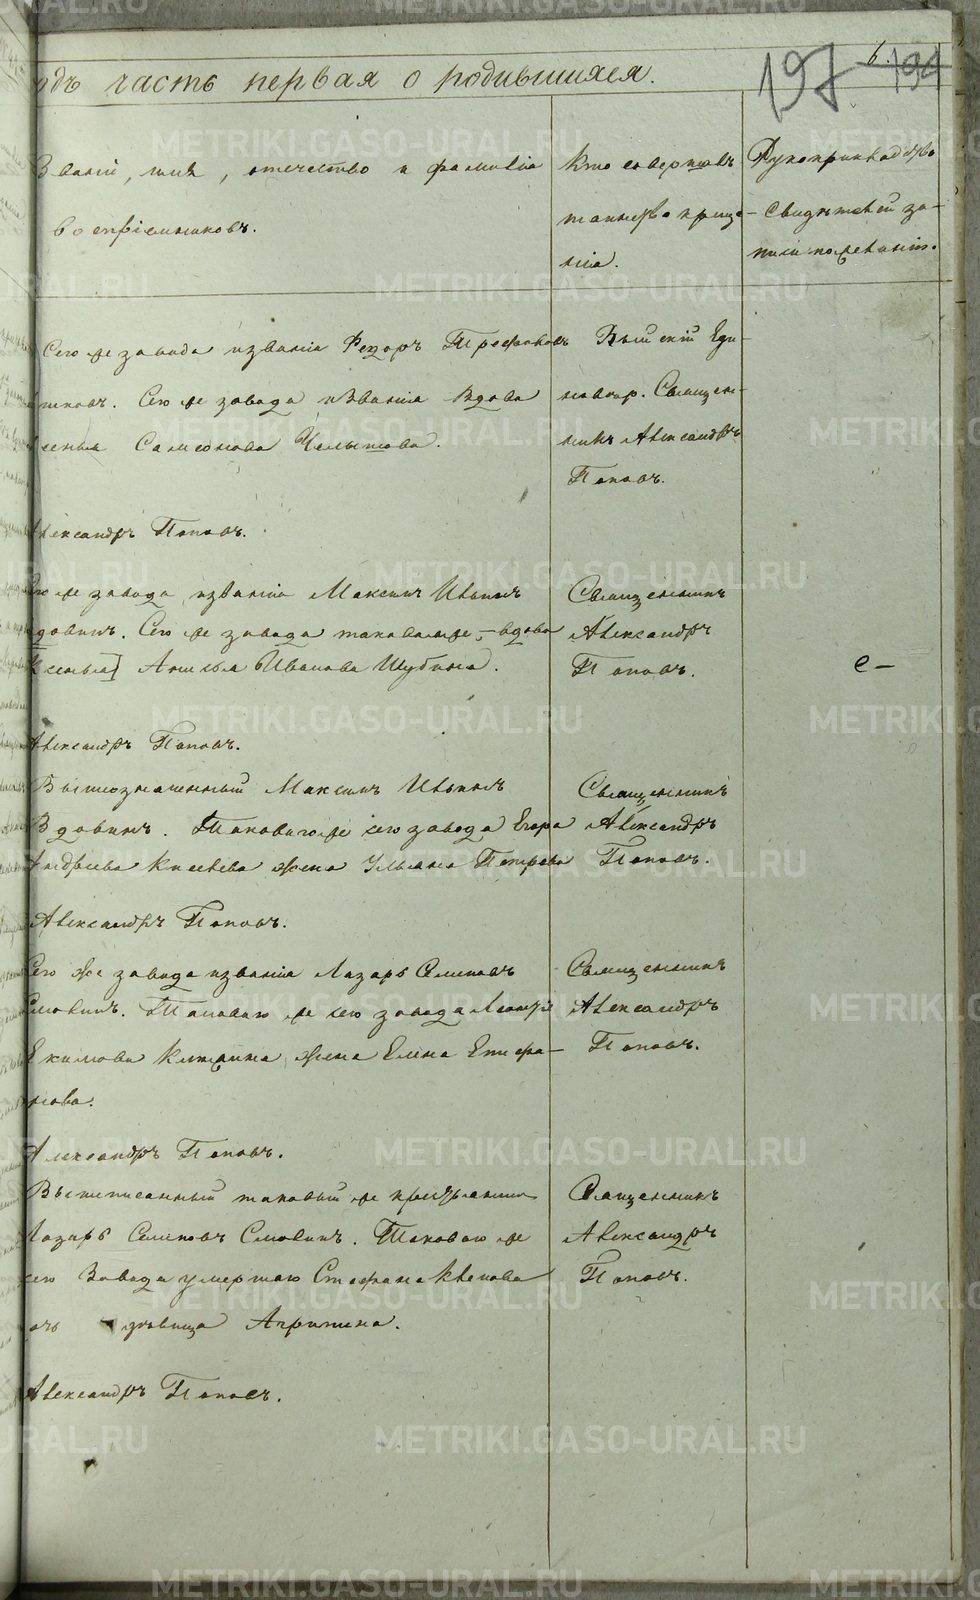 одъ часть первая о родившихся.
197
6.
194
Званiи, имя, отечество и фамилiя
воспрiемниковъ.
Кто совершалъ
таинство креще-
нiя.
Рукоприкладство
свидѣтелей за-
писи по желанiю.
Сего же завода и званiя Федоръ Трефиловъ
Сего же завода и званiя вдова
Самсонова Челышова.
Выйскiй Еди-
новѣр. Священ-
никъ Александръ
Поповъ.
Александръ Поповъ.
Сего же завода и званiя Максимъ Ильинъ
Вдовинъ. Сего же завода таковаго же, вдова
Ксенья] Анисья Иванова Шубина.
Священникъ
Александръ
Поповъ.
е-
Александръ Поповъ.
Вышеозначенный Максимъ Ильинъ
Вдовинъ. Таковаго же сего завода Егора
Андреева Киселева жена Ульяна Петрова
Священникъ
Александръ
Поповъ.
Александръ Поповъ.
Сего же завода и званiя Лазарь Семеновъ
Смовинъ. Таковаго же сего завода
Екимова жена Елена Епифа-
нова.
Священникъ
Александръ
Поповъ.
Александръ Поповъ.
Вышеписанный таковый же крестьянинъ
Лазарь Семеновъ Смовинъ. Таковаго же
сего завода умершаго Стефана
дочь дѣвица Агрипина.
Священникъ
Александръ
Поповъ.
Александръ Поповъ.
METRIKI.GASO-URAL.RU